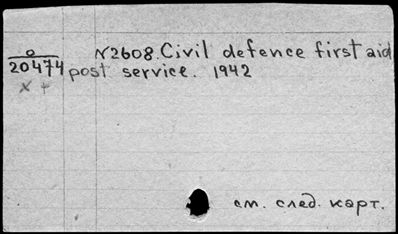 o
20474
x +
N2608. Civil defence first aid
post service. 1942
см. след. карт.